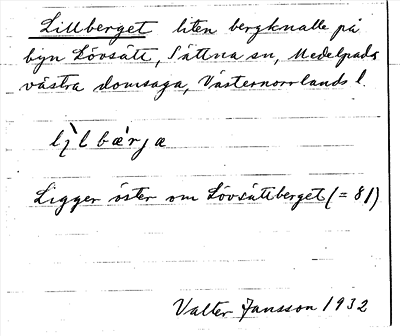 Lillberget liten bergknalle på
byn Lövsätt, Sättna sn, Medelpads
västra domsaga, Västernorrlands l.
lìlbær̀jæ
Ligger öster om Lövsättberget (= 81)
Valter Jansson 1932